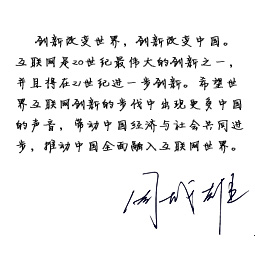 创新改变世界，创新改变中国。
互联网是20世纪最伟大的创新之一，
并且将在21世纪进一步创新。希望世
界互联网创新的步伐中出现更多中国
的声音，带动中国经济与社会共同进
步，推动中国全面融入互联网世界。
周成雄